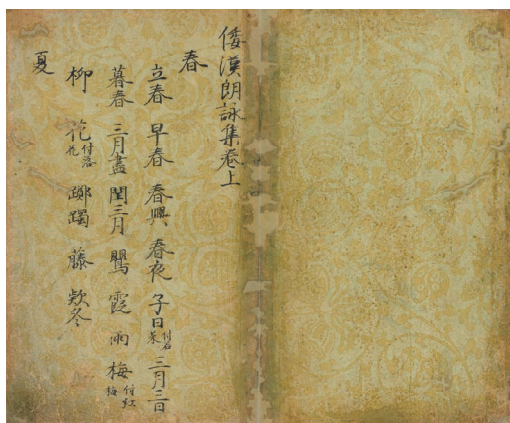 倭漢朗詠集卷上
春
立春 早春 春興 春夜 子日付若菜 三月三日
暮春 三月盡 閏三月 鸎 霞 雨 梅付紅梅
柳 花付落花 躑躅 藤 欵冬
夏